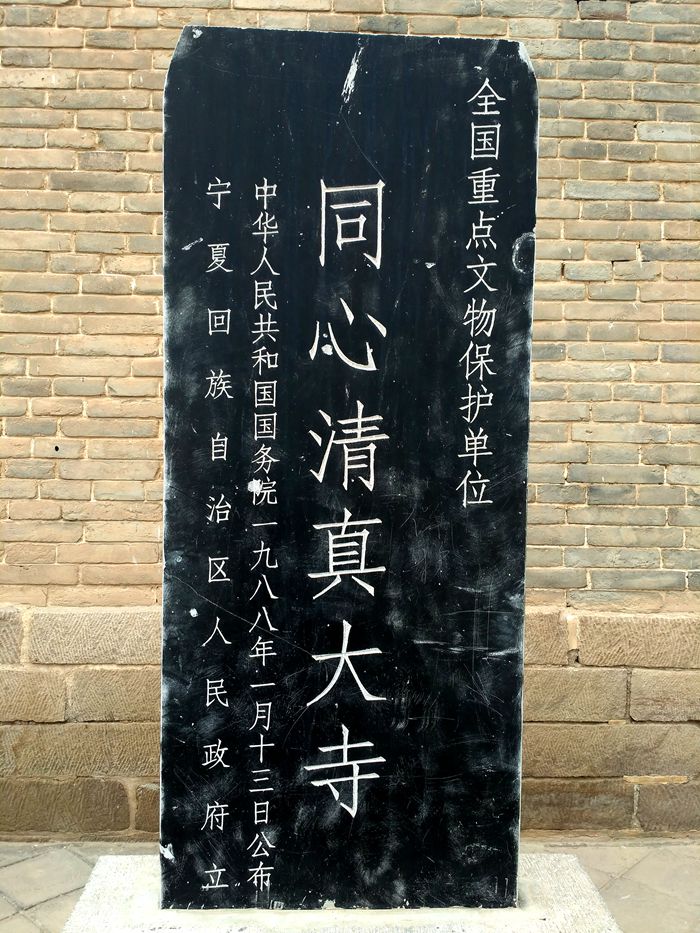 全国重点文物保护单位
同心清真大寺
中华人民共和国国务院一九八八年一月十三日公布
宁夏回族自治区人民政府立